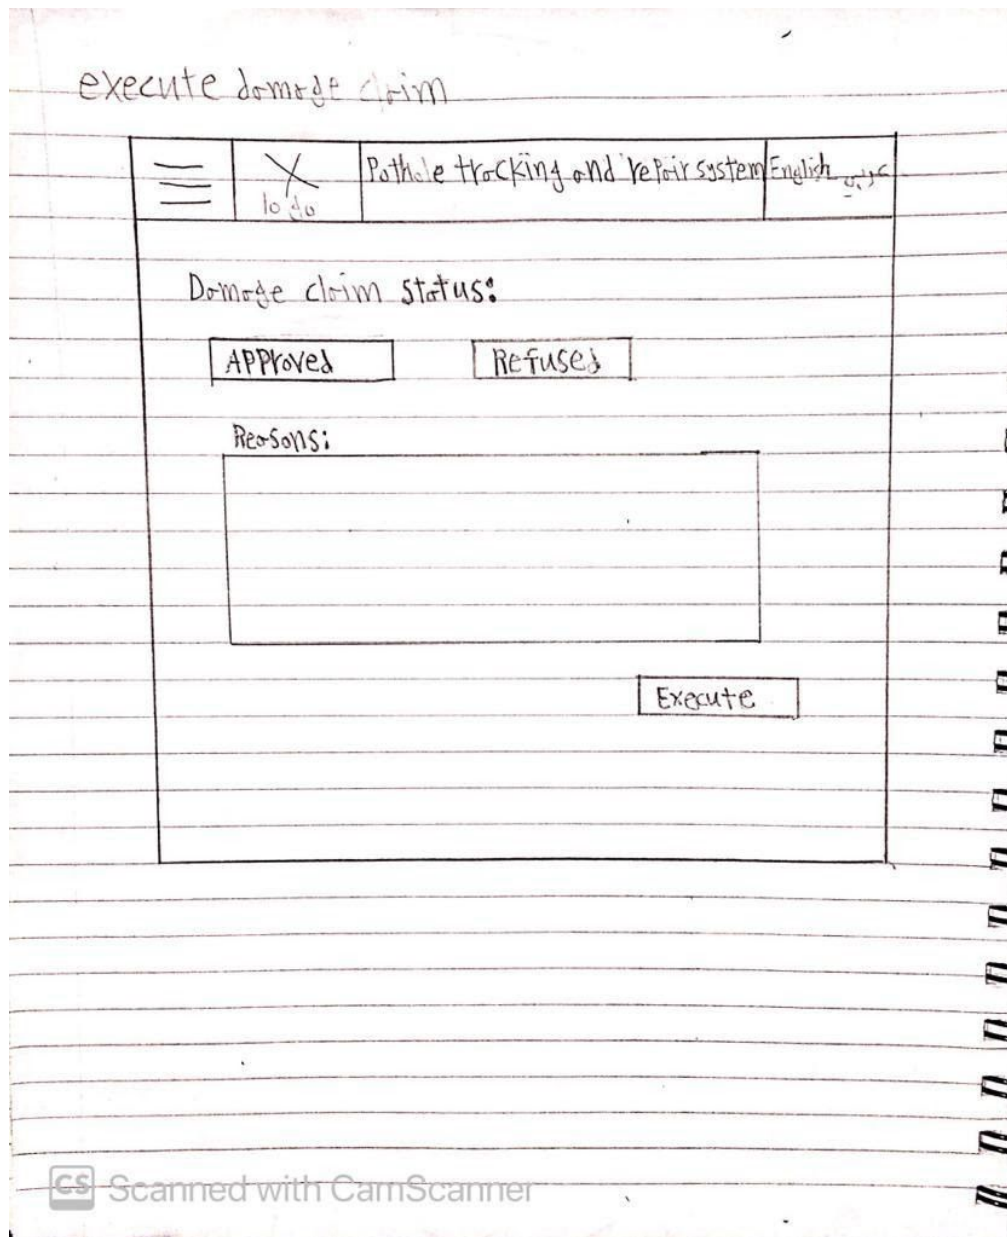 execute damage claim
logo
Pothole tracking and repair system
English عربي
Damage claim status:
Approved
Refused
Reasons:
Execute
CS Scanned with CamScanner